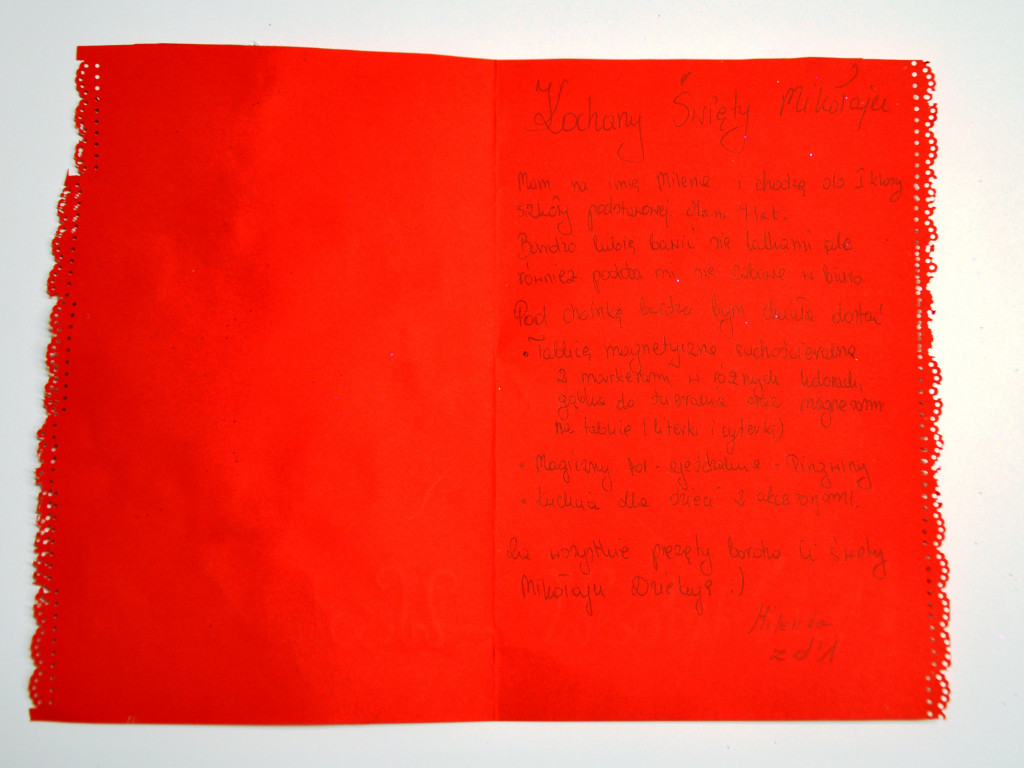 Kochany Święty Mikołaju
Mam na imię Milena i chodzę do I klasy
szkoły podstawowej. Mam lat.
Bardzo lubię bawić się lalkami ale
również podoba mi się zabawa w biuro
Pod choinkę bardzo bym chciała dostać
• Tablicę magnetyczną suchościeralną
z markerami w różnych kolorach,
gąbka do ścierania oraz magnesami
na tablicę (literki i cyferki)
• Magiczny tor - zjeżdżalnia - Pingwiny
• kuchnia dla dzieci z akcesoriami.
Za wszystkie prezęty bardzo Ci święty
Mikołaju Dziękuję :)
Milenka